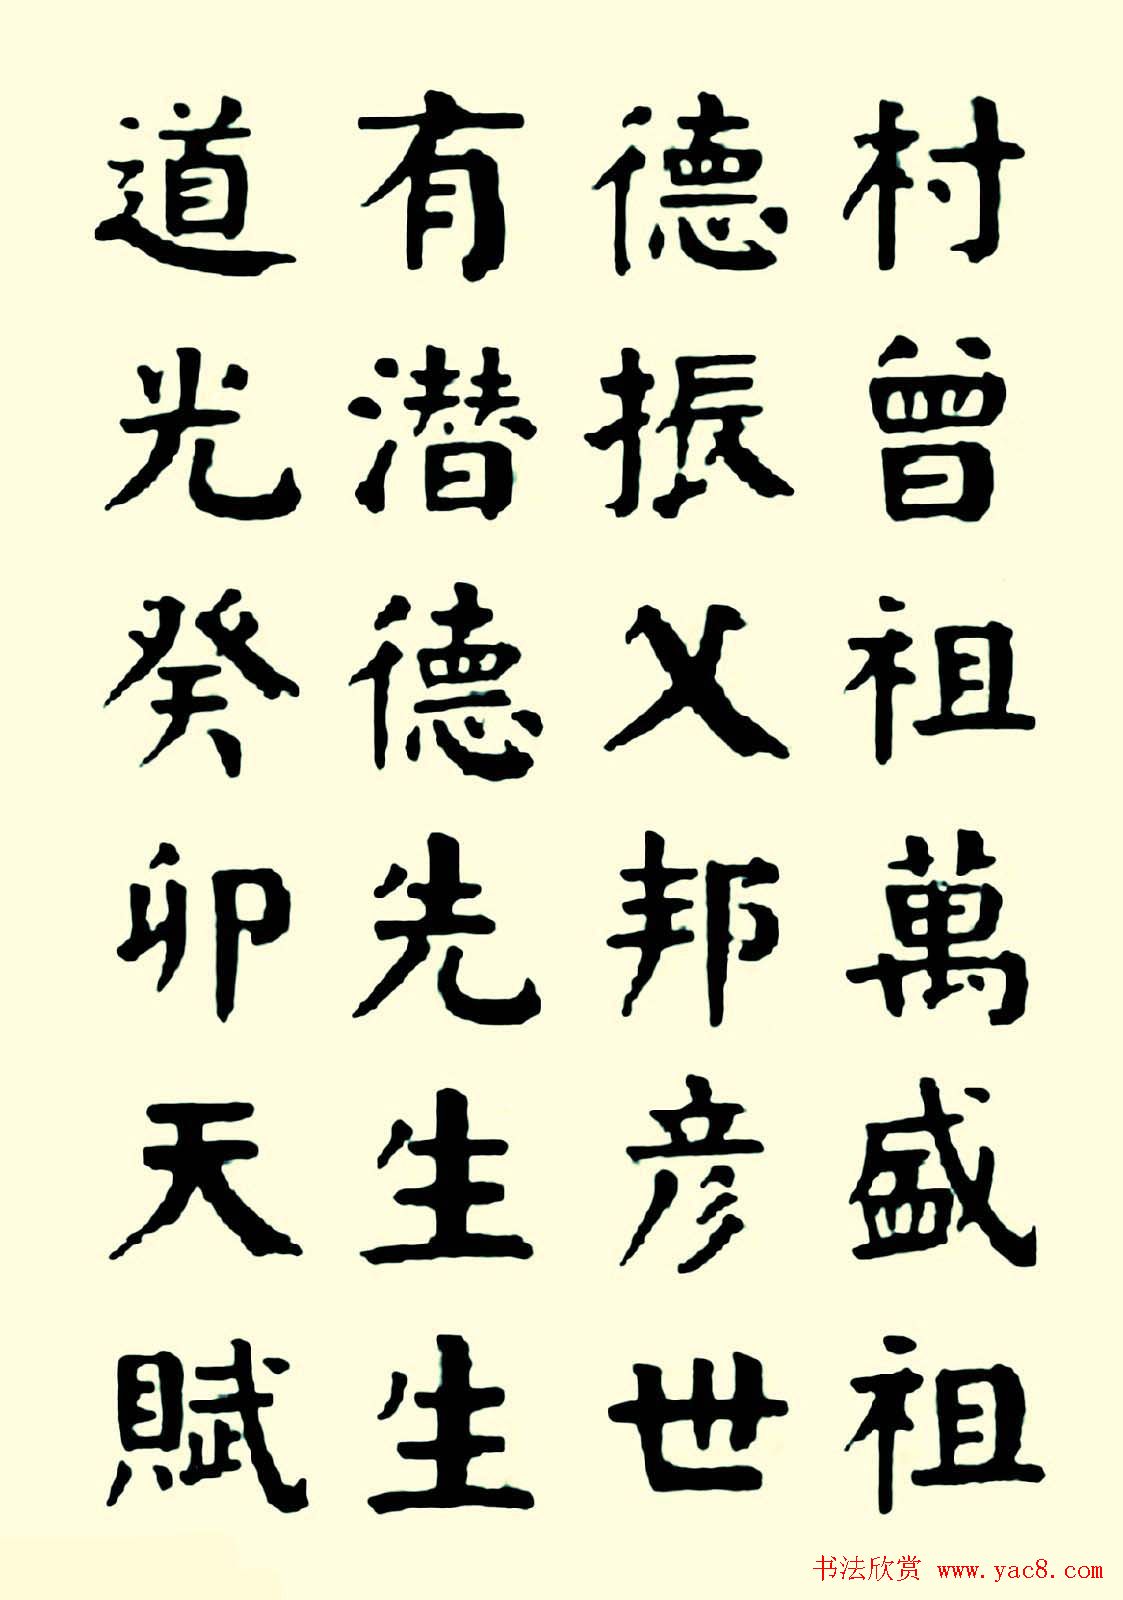 村曾祖萬盛祖
德振乂邦彦世
有潛德先生生
道光癸卯天賦
书法欣赏 www.yac8.com